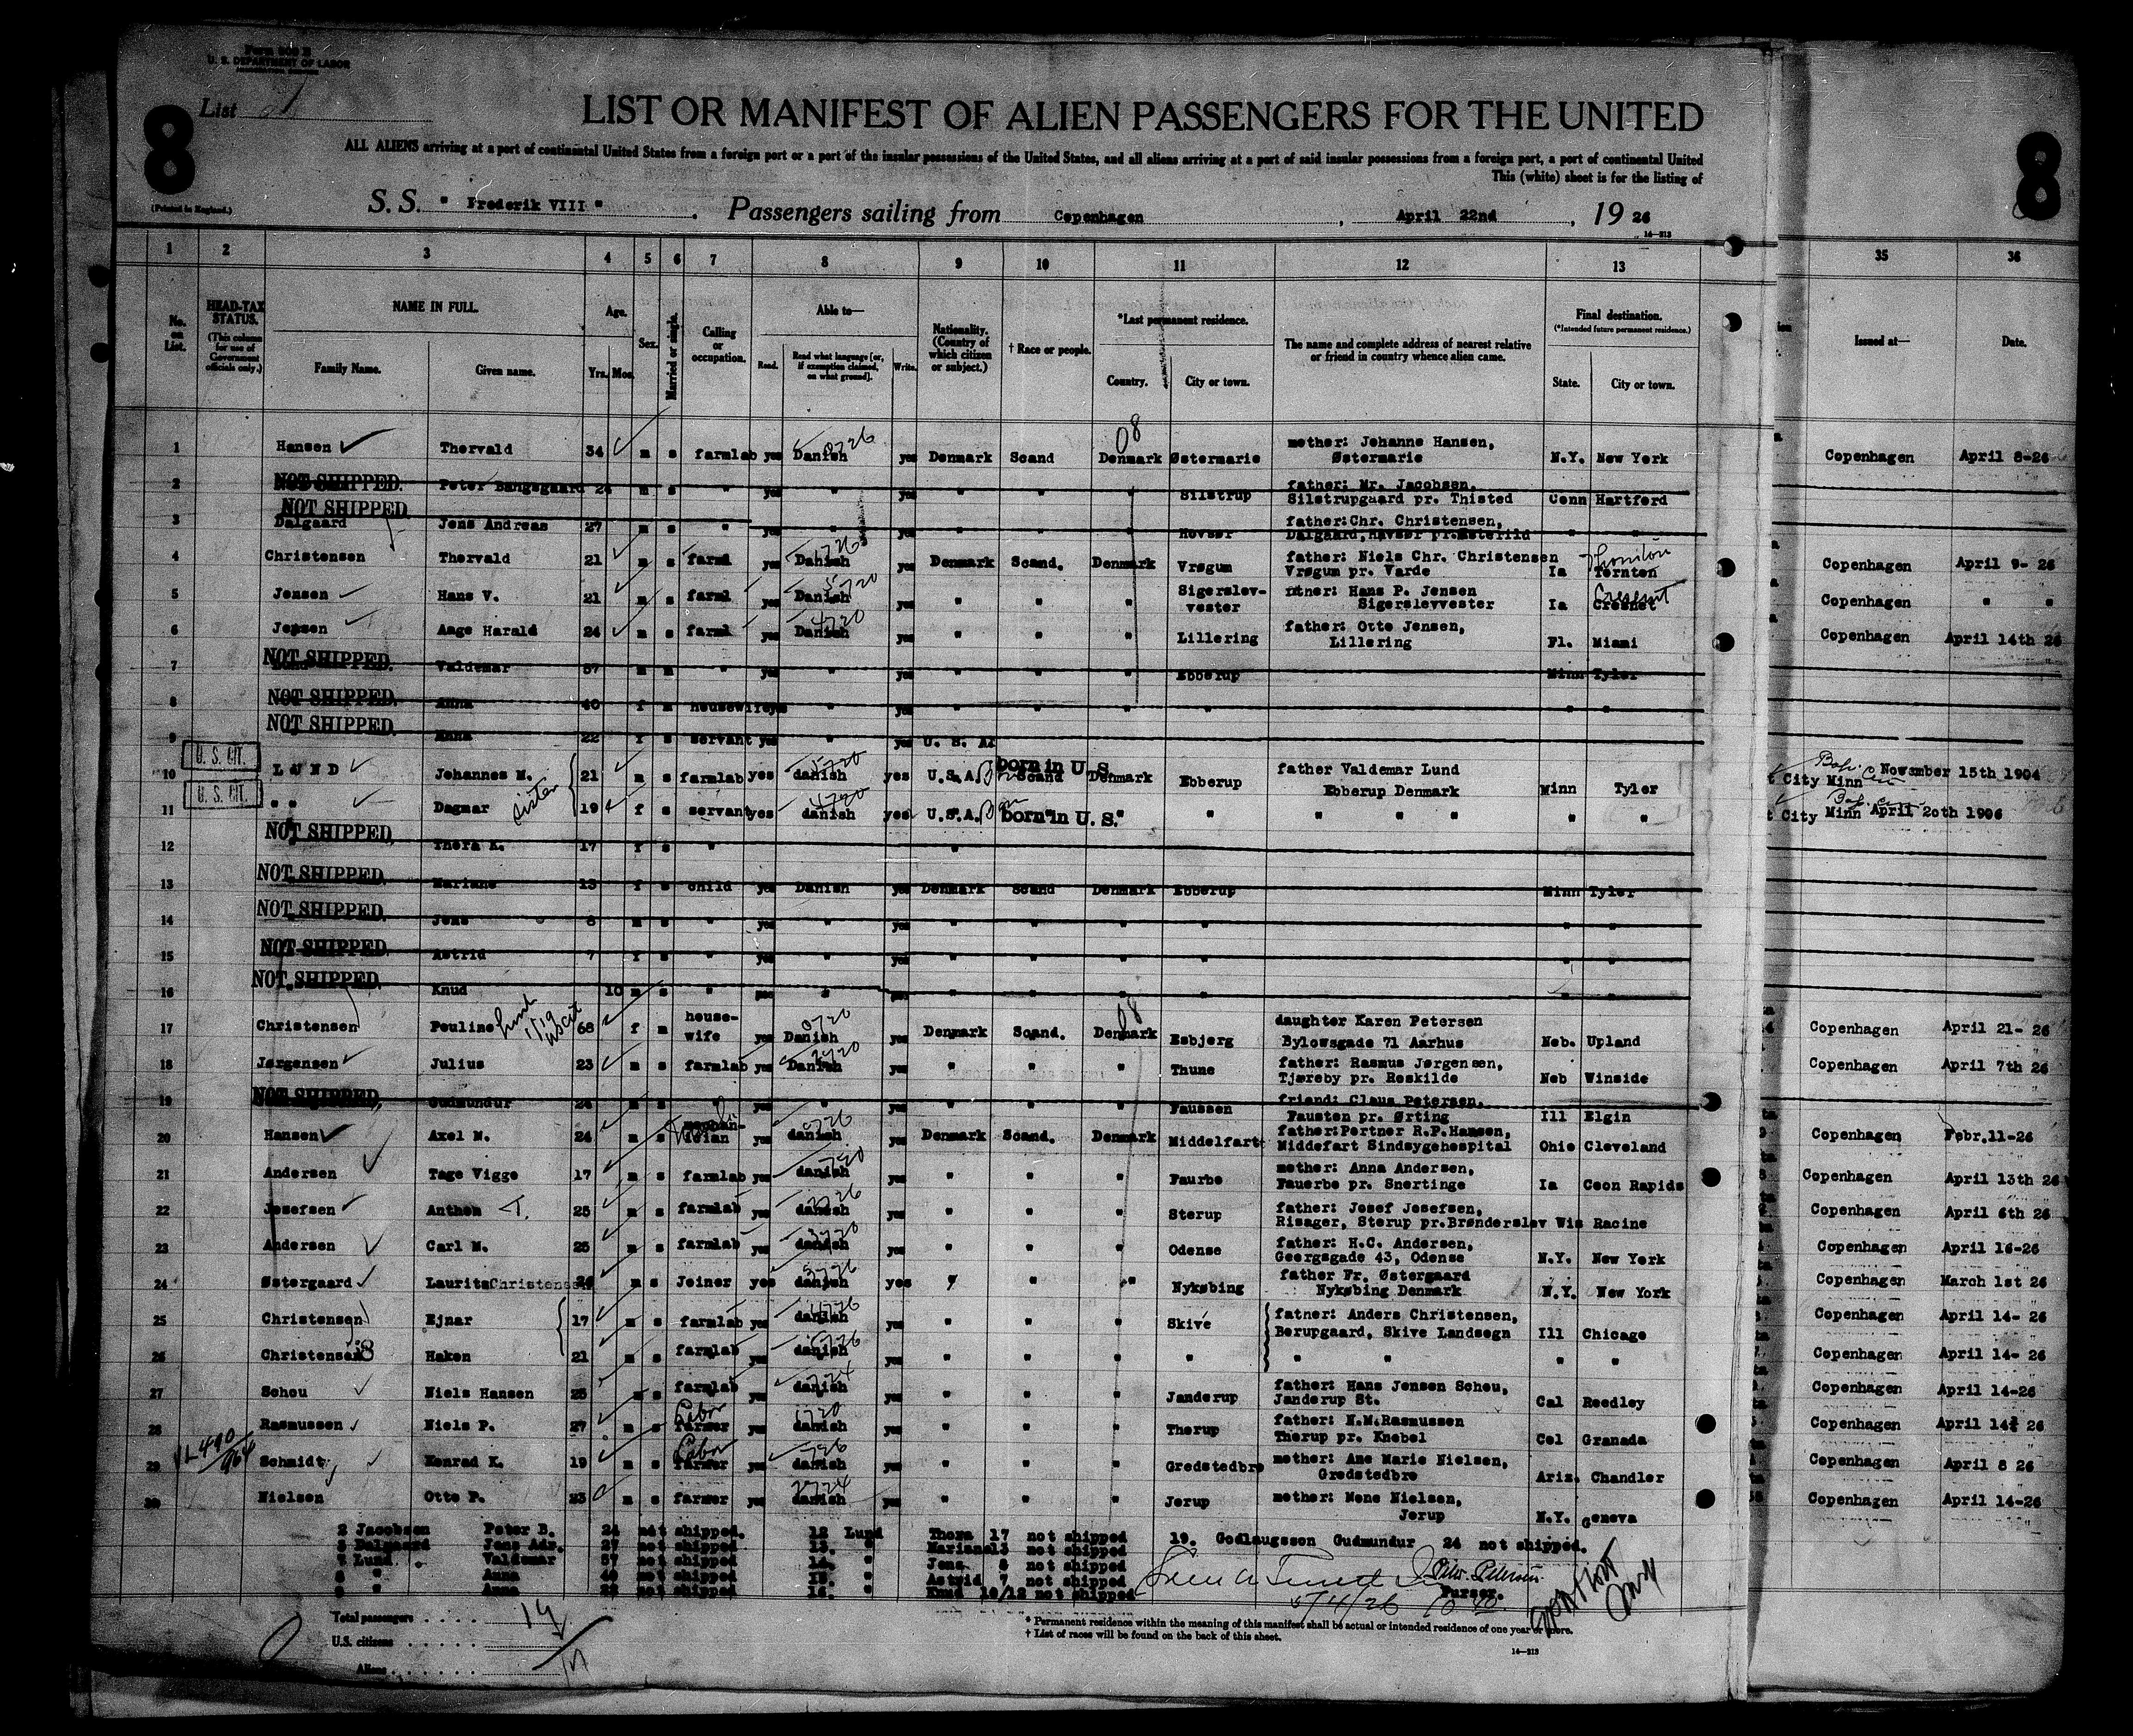 Form 500 B
U. S. DEPARTMENT OF LABOR
8 List
LIST OR MANIFEST OF ALIEN PASSENGERS FOR THE UNITED
8
ALL ALIENS arriving at a port of continental United States from a foreign port or a port of the insular possessions of the United States, and all aliens arriving at a port of said insular possessions from a foreign port, a port of continental United
This (white) sheet is for the listing of
(Printed in England.)
S. S. " Frederik VIII " . Passengers sailing from Copenhagen , April 22nd , 19 26
14—213
1 2 3 4 5 6 7 8 9 10 11 12 13 35 36
No. on List.
HEAD-TAX STATUS. (This column for use of Government officials only.)
NAME IN FULL.
Family Name. Given name.
Age.
Yrs. Mos.
Sex.
Married or single.
Calling or occupation.
Able to—
Read. Read what language [or, if exemption claimed, on what ground]. Write.
Nationality. (Country of which citizen or subject.)
† Race or people.
*Last permanent residence.
Country. City or town.
The name and complete address of nearest relative or friend in country whence alien came.
Final destination.
(*Intended future permanent residence.)
State. City or town.
Issued at— Date.
1 Hansen Thorvald 34 m s farmlab yes Danish yes Denmark Scand Denmark Østermarie mother: Johanne Hansen, Østermarie N.Y. New York Copenhagen April 8-26
2 NOT SHIPPED. Peter Bangsgaard 24 m s " yes " yes " " " Silstrup father: Mr. Jacobsen, Silstrupgaard pr. Thisted Conn Hartford
3 NOT SHIPPED. Dalgaard Jens Andreas 27 m s " yes " yes " " " Hovsør father: Chr. Christensen, Dalgaard, Hovsør pr. " "
4 Christensen Thorvald 21 m s farml yes Danish yes Denmark Scand. Denmark Vrøgum father: Niels Chr. Christensen Vrøgum pr. Varde Ia Tornton Thornton Copenhagen April 9- 26
5 Jensen Hans V. 21 m s farml yes Danish yes " " " Sigerslev-vester Hans P. Jensen Sigerslevvester Ia Cresent Copenhagen " "
6 Jensen Aage Harald 24 m s farml yes Danish yes " " " Lillering father: Otto Jensen, Lillering Fl. Miami Copenhagen April 14th 26
7 NOT SHIPPED. Valdemar 57 m m " yes " yes " " " Ebberup Minn Tyler
8 NOT SHIPPED. Anna 40 f m housewife yes " yes " " " " " "
9 NOT SHIPPED. Anna 22 f s servant yes " yes U. S. A.
U. S. CIT. 10 LUND Johannes M. 21 m s farmlab yes danish yes U.S.A. born in U S Scand Denmark Ebberup father Valdemar Lund Ebberup Denmark Minn Tyler t City Minn November 15th 1904
U. S. CIT. 11 " " Dagmar sister 19 f s servant yes danish yes U.S.A. born in U. S. " " " " " " " t City Minn April 20th 1906
12 NOT SHIPPED. Thora K. 17 f s " "
13 NOT SHIPPED. Mariane 13 f s child yes Danish yes Denmark Scand Denmark Ebberup Minn Tyler
14 NOT SHIPPED. Jens 8 m s " yes " yes " " " " " "
15 NOT SHIPPED. Astrid 7 f s " yes " yes " " " " " "
16 NOT SHIPPED. Knud 10 m s " " " " " " " "
17 Christensen Pouline 68 f m house-wife yes Danish yes Denmark Scand. Denmark Esbjerg daughter Karen Petersen Bylowsgade 71 Aarhus Neb. Upland Copenhagen April 21- 26
18 Jørgensen Julius 23 m s farmlab yes Danish yes " " " Thune father: Rasmus Jørgensen, Tjæreby pr. Roskilde Neb Winside Copenhagen April 7th 26
19 NOT SHIPPED. Gudmundur 24 m s " yes " yes " " " Faussen friend: Claus Petersen, Fausten pr. Ørting Ill Elgin
20 Hansen Axel M. 24 m s yes danish yes Denmark Scand. Denmark Middelfart father: Portner R.P. Hansen, Middefart Sindsygehospital Ohio Cleveland Copenhagen Febr. 11-26
21 Andersen Tage Viggo 17 m s farmlab yes danish yes " " " Faurbo mother: Anna Andersen, Fauerbo pr. Snertinge Ia Coon Rapids Copenhagen April 13th 26
22 Josefsen Anthon 25 m s farmlab yes danish yes " " " Sterup father: Josef Josefsen, Risager, Sterup pr. Brønderslev Wis Racine Copenhagen April 6th 26
23 Andersen Carl M. 25 m s farmlab yes danish yes " " " Odense father: H.C. Andersen, Georgsgade 43, Odense N.Y. New York Copenhagen April 16-26
24 Østergaard Laurits Christensen m s Joiner yes danish yes " " " Nykøbing father Fr. Østergaard Nykøbing Denmark N.Y. New York Copenhagen March 1st 26
25 Christensen Ejnar 17 m s farmlab yes danish yes " " " Skive father: Anders Christensen, Borupgaard, Skive Landsogn Ill Chicago Copenhagen April 14- 26
26 Christensen Hakon 21 m s farmlab yes danish yes " " " " " " " " Copenhagen April 14- 26
27 Schou Niels Hansen 25 m s farmlab yes danish yes " " " Janderup father: Hans Jensen Schou, Janderup St. Cal Reedley Copenhagen April 14-26
28 Rasmussen Niels P. 27 m s farmer Labor yes danish yes " " " Thorup father: N.M. Rasmussen Thorup pr. Knebel Col Granada Copenhagen April 14 26
29 Schmidt Konrad K. 19 m s farmer Labor yes danish yes " " " Gredstedbro mother: Ane Marie Nielsen, Gredstedbro Ariz. Chandler Copenhagen April 8 26
30 Nielsen Otto P. 23 m s farmer yes danish yes " " " Jerup mother: Mone Nielsen, Jerup N.Y. Geneva Copenhagen April 14-26
2 Jacobsen Peter B. 24 not shipped. 12 Lund Thora 17 not shipped 19. Godlaugsson Gudmundur 24 not shipped.
3 Dalgaard Jens Adr. 27 not shipped 13. " Mariane 13 not shipped
7 Lund Valdemar 57 not shipped 14. " Jens 8 not shipped
8 " Anna 40 not shipped 15. " Astrid 7 not shipped
9 " Anna 22 not shipped 16. " Knud 10/12 not shipped
Purser.
5/4/26
Total passengers . . . . 19
U.S. citizens . . . . .
Aliens . . . . . . 17
* Permanent residence within the meaning of this manifest shall be actual or intended residence of one year or more.
† List of races will be found on the back of this sheet.
14—213